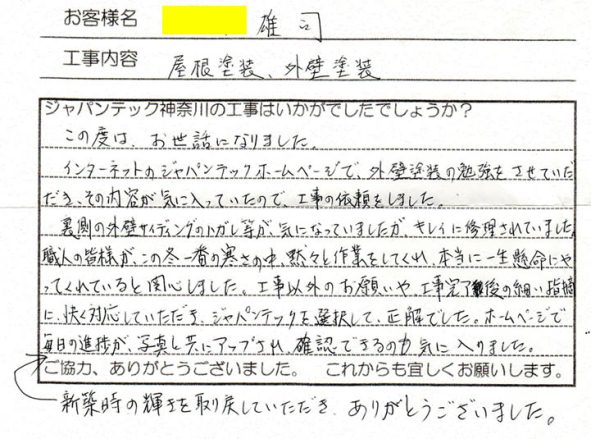 お客様名 雄司
工事内容 屋根塗装、外壁塗装
ジャパンテック神奈川の工事はいかがでしたでしょうか?
この度は、お世話になりました。
インターネットのジャパンテックホームページで、外壁塗装の勉強をさせていた
だき、その内容が気に入っていたので、工事の依頼をしました。
裏側の外壁サイディングのトガレ等が、気になっていましたが、キレイに修理されていました。
職人の皆様が、この冬一番の寒さの中、黙々と作業をしてくれ、本当に一生懸命にや
ってくれていると関心しました。工事以外のお願いや、工事完了後の細い指摘
に、快く対応していただき、ジャパンテックを選択して、正解でした。ホームページで
毎日の進捗が、写真と共にアップされ、確認できるのも気に入りました。
ご協力、ありがとうございました。 これからも宜しくお願いします。
新築時の輝きを取戻していただき、ありがとうございました。